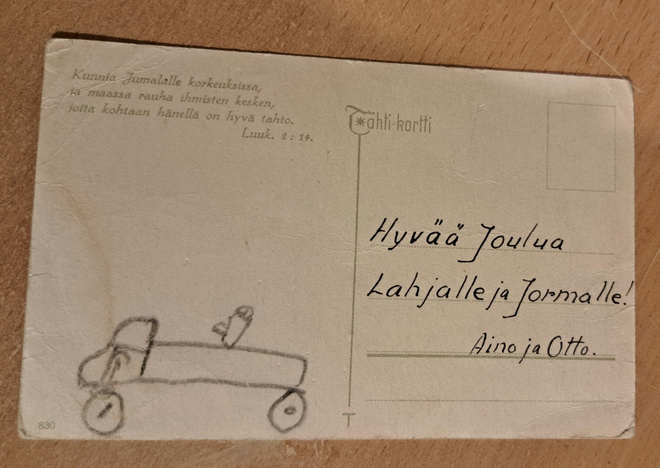 Kunnia Jumalalle korkeuksissa,
ja maassa rauha ihmisten kesken,
joita kohtaan hänellä on hyvä tahto.
Luuk. 2 : 14.
Tähti-kortti
Hyvää Joulua
Lahjalle ja Jormalle!
Aino ja Otto.
830
T